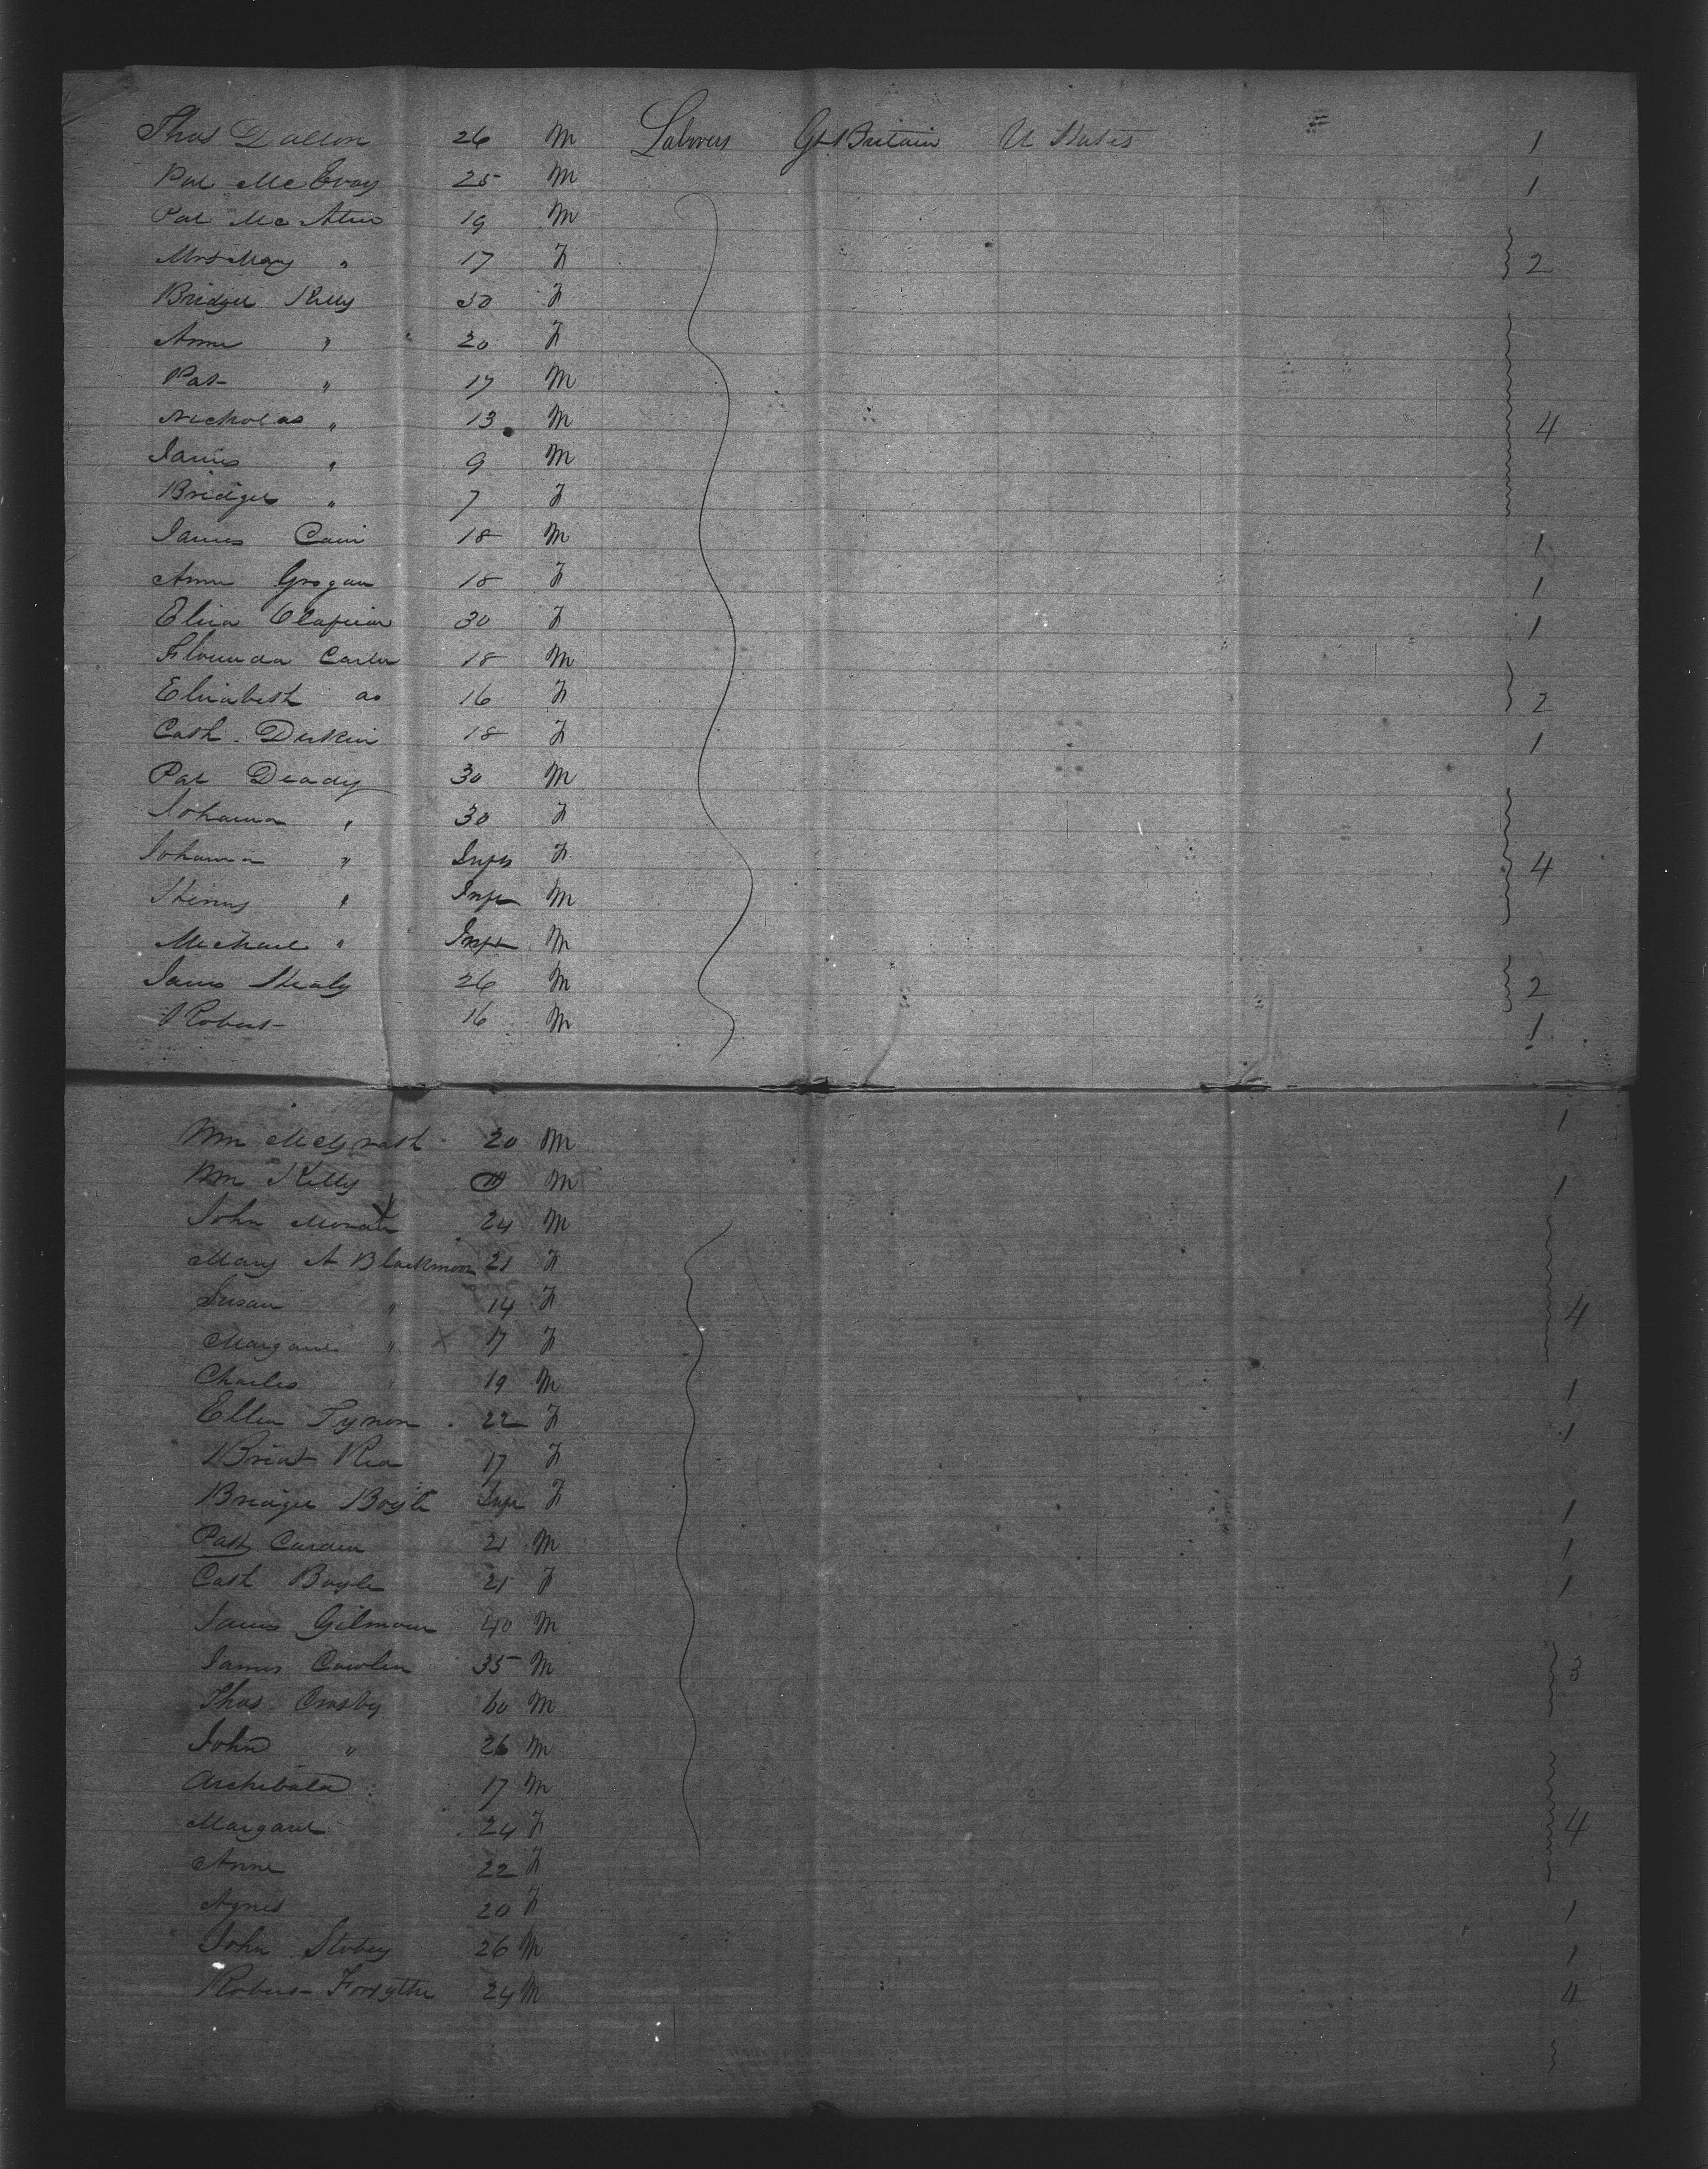 Thos Dalton 26 M Laborers Gt Britain U States 1
Pat McEvoy 25 M 1
Pat McAtee 19 M
Mrs Mary " 17 F 2
Bridget Kelly 50 F
Anne " 20 F
Pat " 17 M
Nicholas " 13 M 4
James " 9 M
Bridget " 7 F
James Cain 18 M 1
Anne Grogan 18 F 1
Eliza 30 F 1
Carter 18 M
Elizabeth do 16 F 2
Cath. Durkin 18 F 1
Pat Deady 30 M
Johanna " 30 F
Johanna " Inft F 4
" Inft M
Michael " Inft M
James Healy 26 M 2
Robert 16 M 1
Wm McGrath 20 M 1
Wm Kelly M 1
John 24 M
Mary A Blackmoor 21 F
Susan " 14 F 4
Margaret " 17 F
Charles 19 M 1
Ellen Tynon 22 F 1
Bridt Rea 17 F
Bridget Boyle Inft F 1
Patk Carden 21 M 1
Cath Boyle 21 F 1
James Gilmour 40 M
James 35 M 3
Thos Crosby 60 M
John " 26 M
Archibald " 17 M
Margaret 24 F 4
Anne 22 F
Agnes 20 F 1
John Stobey 26 M 1
Robert Forsythe 24 M 4